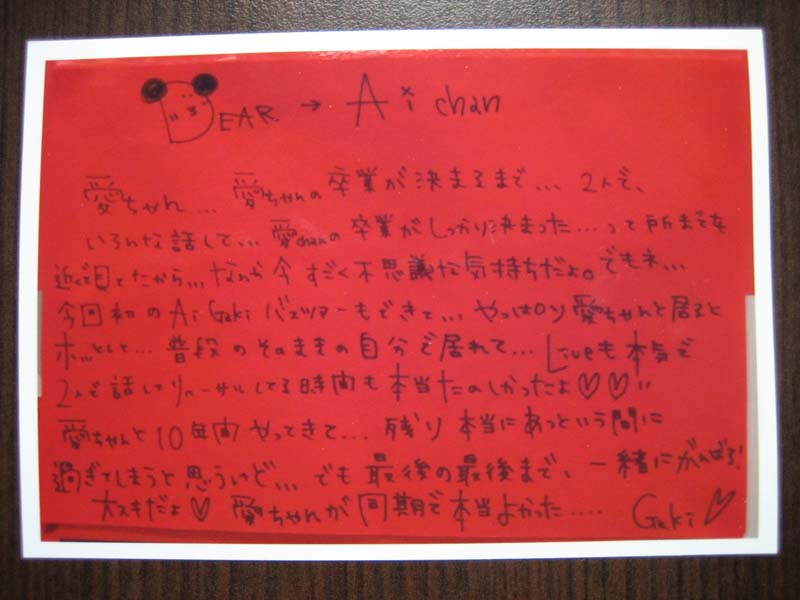 DEAR → Ai chan
愛ちゃん... 愛ちゃんの卒業が決まるまで... 2人で、
いろんな話して... 愛chanの卒業がしっかり決まった...って所までを
近くで見てたから... なんか今すごく不思議な気持ちだよ。でもネ...
今回初のAi Gakiバスツアーもできて... やっぱり愛ちゃんと居ると
ホッとして... 普段のそのままの自分で居れて... Liveも本気で
2人で話してリハーサルしてる時間も本当たのしかったよ♡♡!!
愛ちゃんと10年間やってきて... 残り本当にあっという間に
過ぎてしまうと思うけど... でも最後の最後まで、一緒にがんばろ!
大スキだよ♡ 愛ちゃんが同期で本当よかった.... Gaki♡